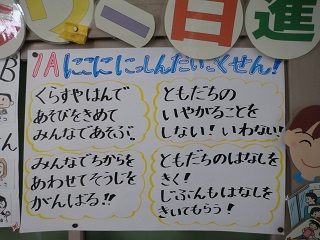 日進
B
1Aにこにこにっしんだいさくせん!
くらすやはんで
あそびをきめて
みんなであそぶ。
ともだちの
いやがることを
しない!いわない!
みんなでちからを
あわせてそうじを
がんばる!!
ともだちのはなしを
きく!
じぶんもはなしを
きいてもらう!